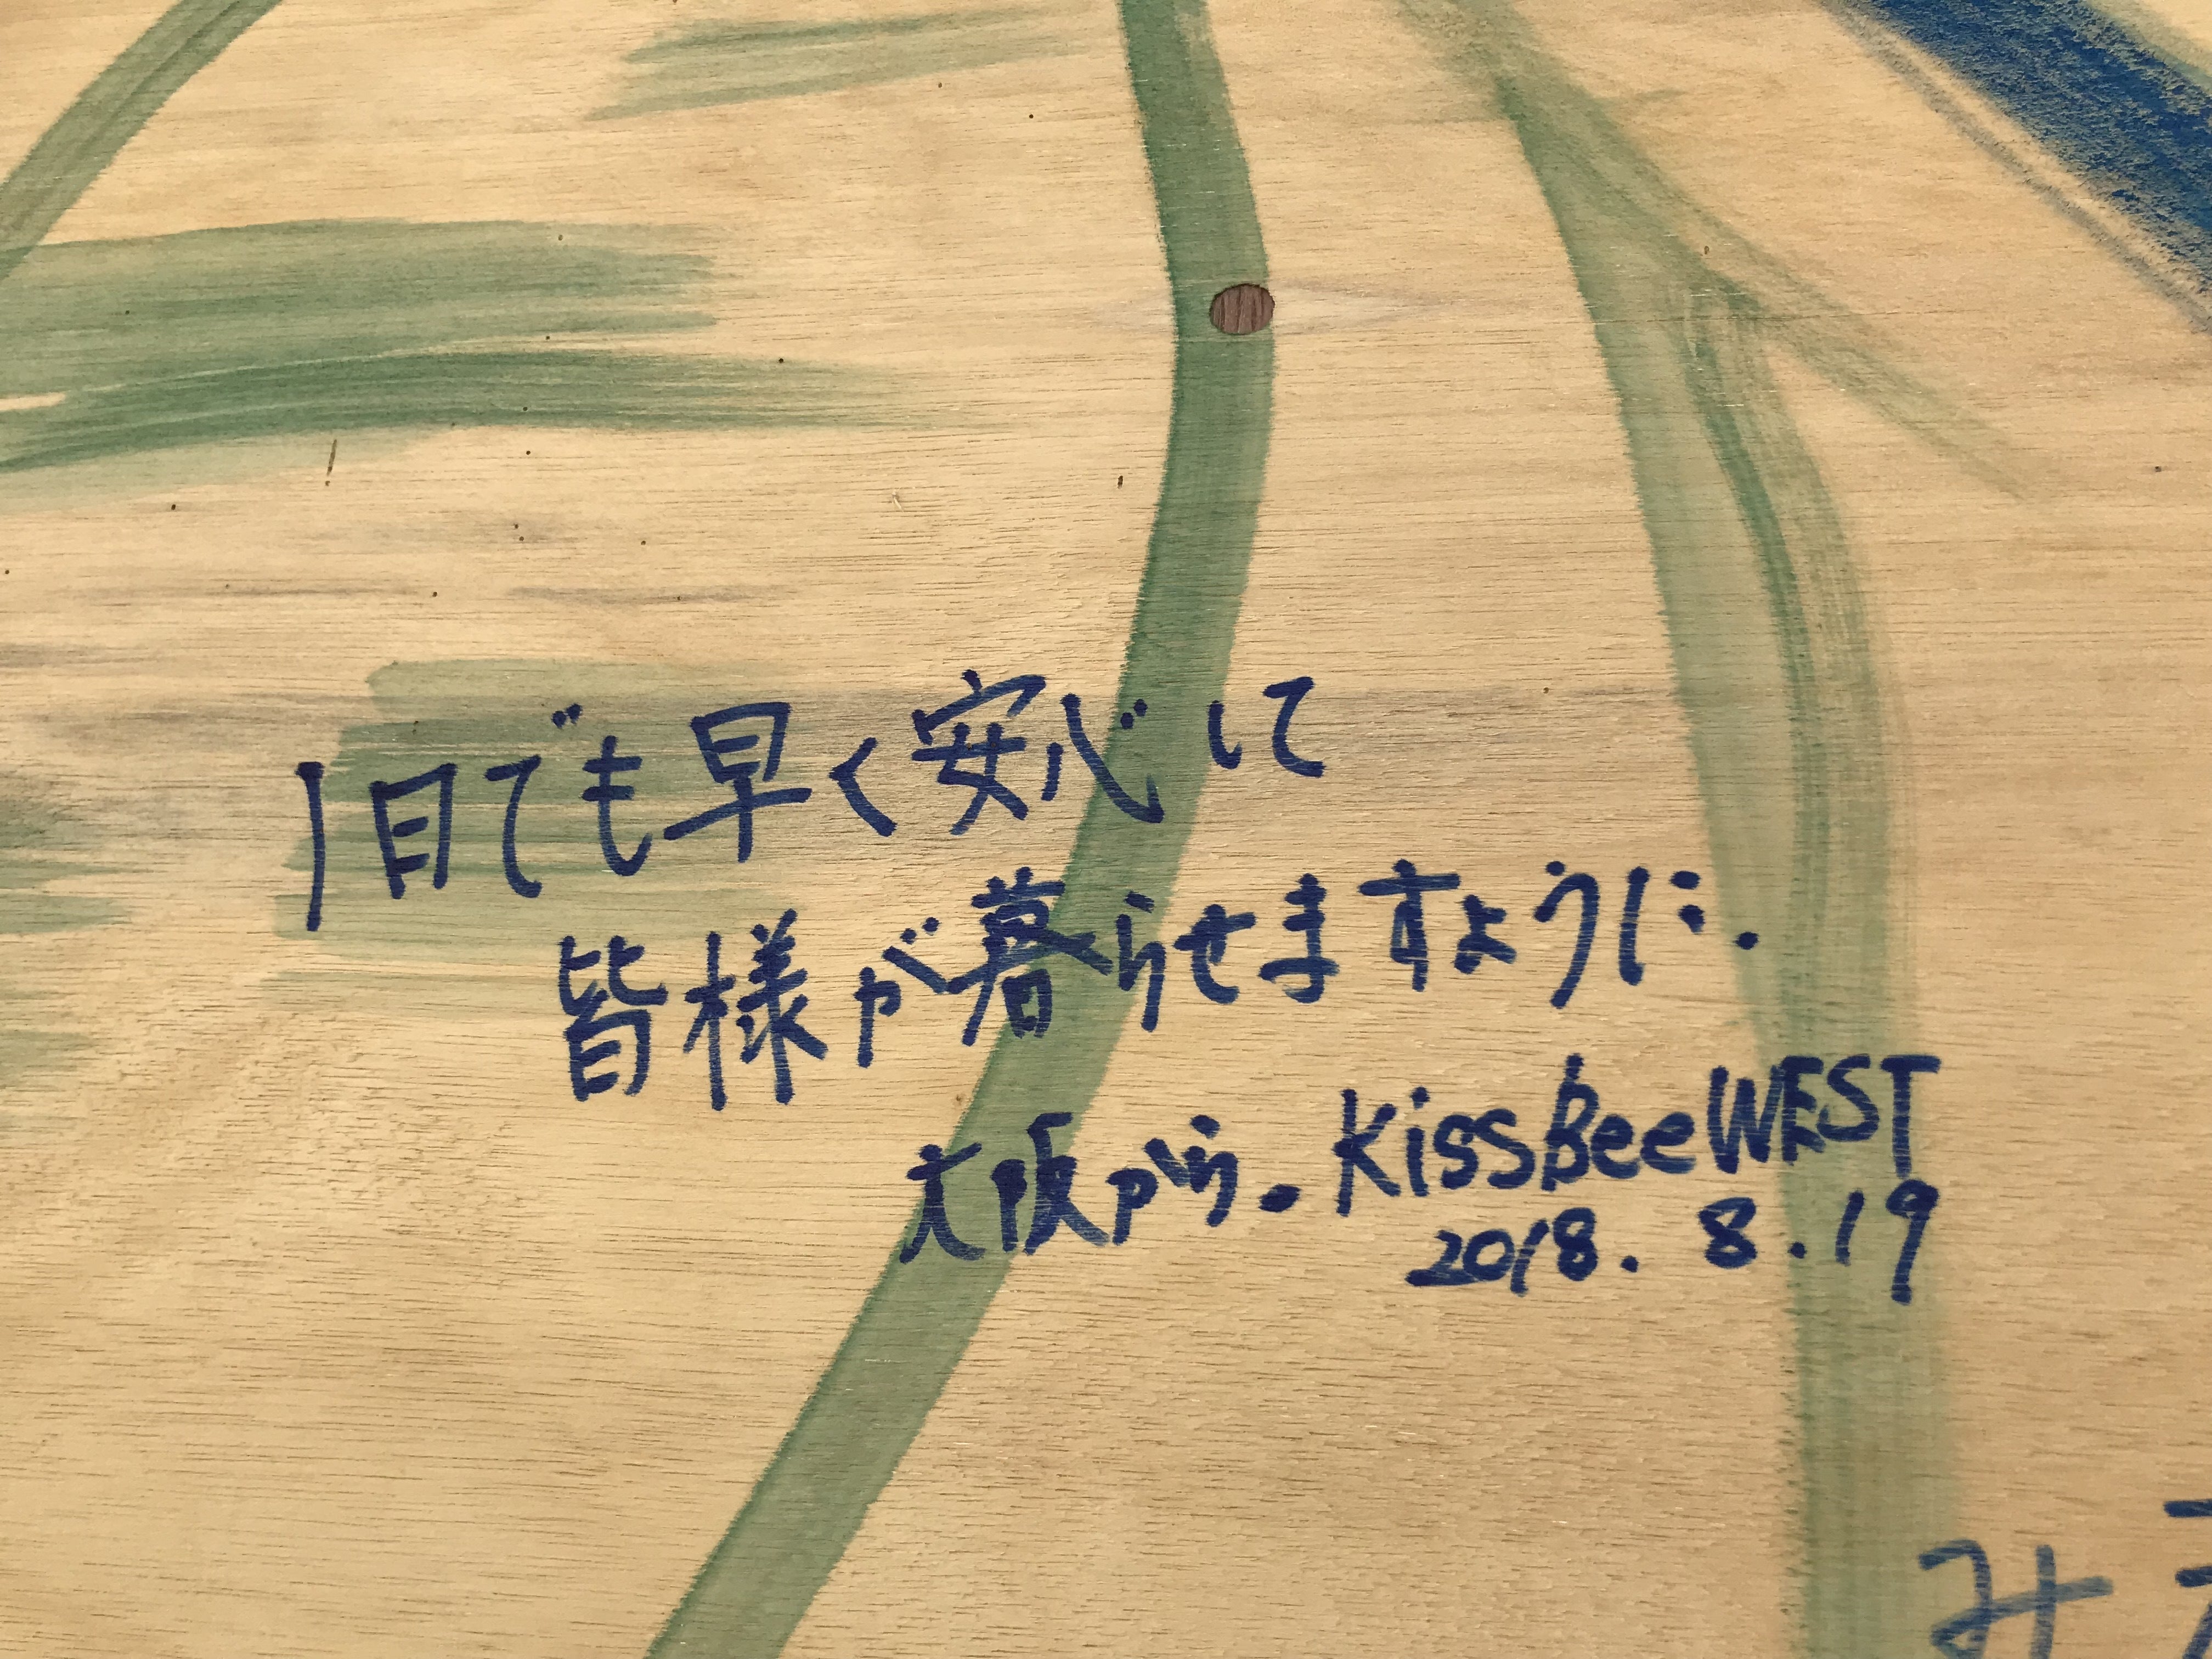 1日でも早く安心して
皆様が暮らせますように.
大阪から. KissBeeWEST
2018. 8.19
み